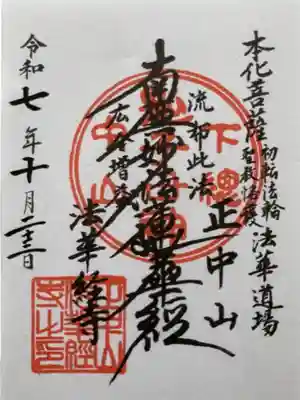 本化菩薩
初転法輪
法華道場
正中山
流布此法
南無妙法蓮華経
広令増益
法華経寺
令和七年十月
下總